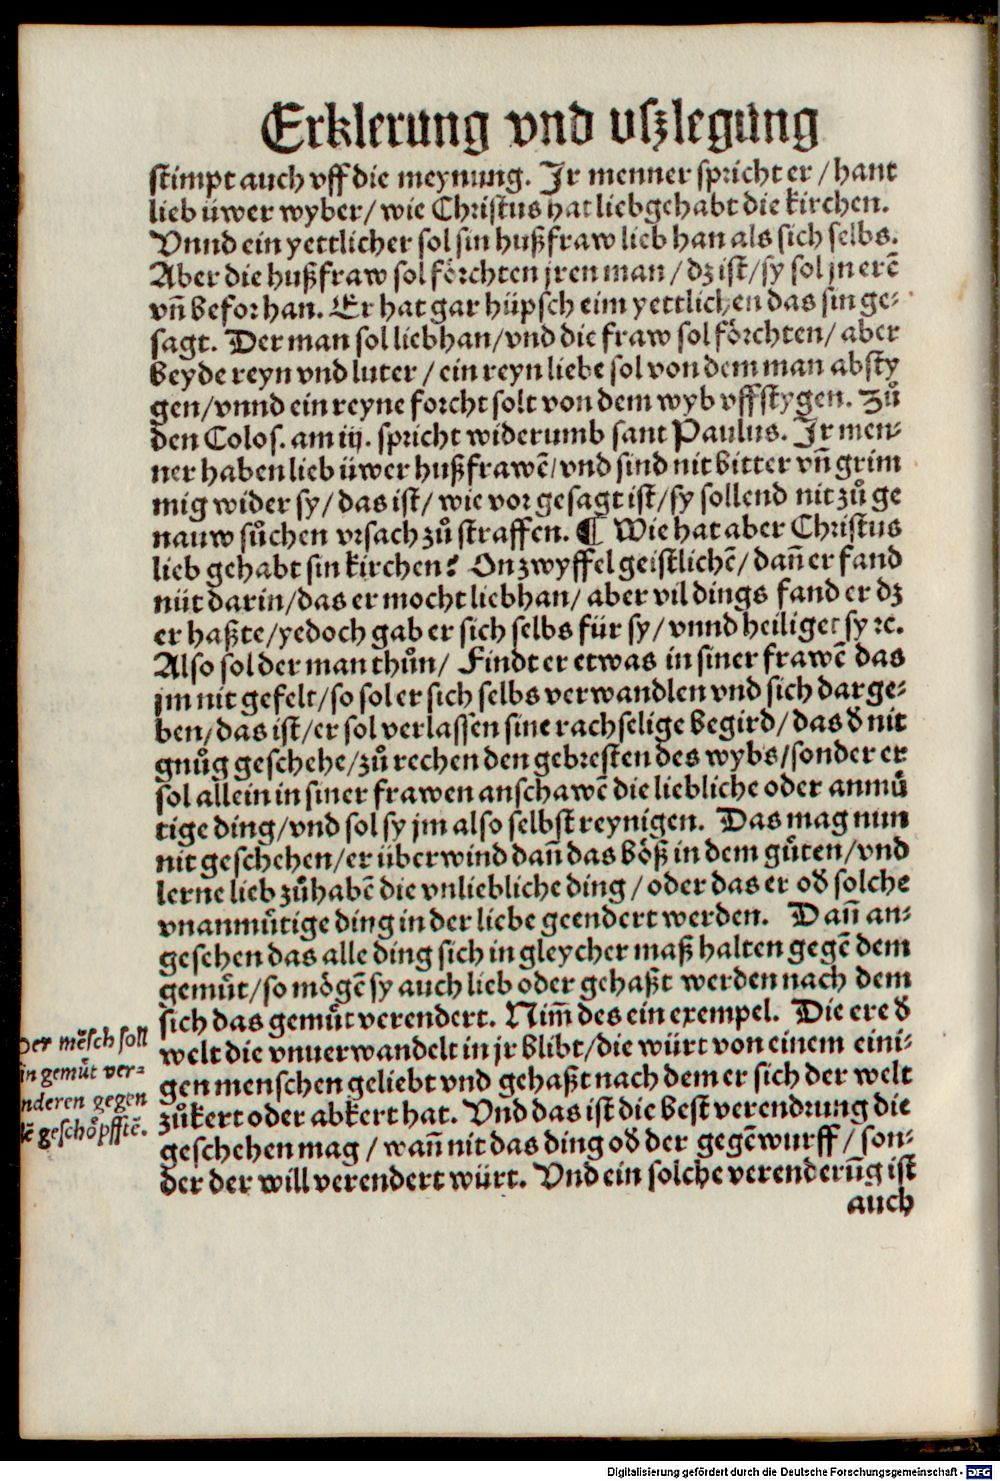 Erklerung vnd vſzlegung
ſtimpt auch vff die meynung. Jr menner ſpricht er / hant
lieb üwer wyber / wie Chriſtus hat lieb gehabt die kirchen.
Vnnd ein yettlicher ſol ſin hußfraw lieb han als ſich ſelbs.
Aber die hußfraw ſol förchten jren man / dz iſt / ſy ſol jn erē
vñ befor han. Er hat gar hüpſch eim yettlichen das ſin ge⸗
ſagt. Der man ſol liebhan / vnd die fraw ſol förchten / aber
beyde reyn vnd luter / ein reyn liebe ſol von dem man abſty
gen / vnnd ein reyne forcht ſolt von dem wyb vffſtygen. Zů
den Coloſ. am iij. ſpricht widerumb ſant Paulus. Jr men⸗
ner haben lieb üwer hußfrawē / vnd ſind nit bitter vñ grim
mig wider ſy / das iſt / wie vor geſagt iſt / ſy ſollend nit zů ge
nauw ſůchen vrſach zů ſtraffen. ¶ Wie hat aber Chriſtus
lieb gehabt ſin kirchen? On zwyffel geiſtlichē / dañ er fand
nüt darin / das er mocht liebhan / aber vil dings fand er dz
er haßte / yedoch gab er ſich ſelbs für ſy / vnnd heiliget ſy ꝛc.
Alſo ſol der man thůn / Findt er etwas in ſiner frawē das
jm nit gefelt / ſo ſol er ſich ſelbs verwandlen vnd ſich dar ge⸗
ben / das iſt / er ſol verlaſſen ſine rachſelige begird / das đ nit
gnůg geſchehe / zů rechen den gebreſten des wybs / ſonder er
ſol allein in ſiner frawen anſchawē die liebliche oder anmů
tige ding / vnd ſol ſy jm alſo ſelbſt reynigen. Das mag nun
nit geſchehen / er überwind dañ das böß in dem gůten / vnd
lerne lieb zůhabē die vnliebliche ding / oder das er ođ ſolche
vnanmůtige ding in der liebe geendert werden. Dañ an⸗
geſehen das alle ding ſich in gleycher maß halten gegē dem
gemůt / ſo mögē ſy auch lieb oder gehaßt werden nach dem
ſich das gemůt verendert. Nim̄ des ein exempel. Die ere đ
welt die vnuerwandelt in jr blibt / die würt von einem eini⸗
gen menſchen geliebt vnd gehaßt nach dem er ſich der welt
zůkert oder abkert hat. Vnd das iſt die beſt verendrung die
geſchehen mag / wañ nit das ding ođ der gegēwurff / ſon⸗
der der will verendert würt. Vnd ein ſolche verenderūg iſt
auch
Der mēſch ſoll
in gemůt ver⸗
nderen gegen
geſchöpfftē.